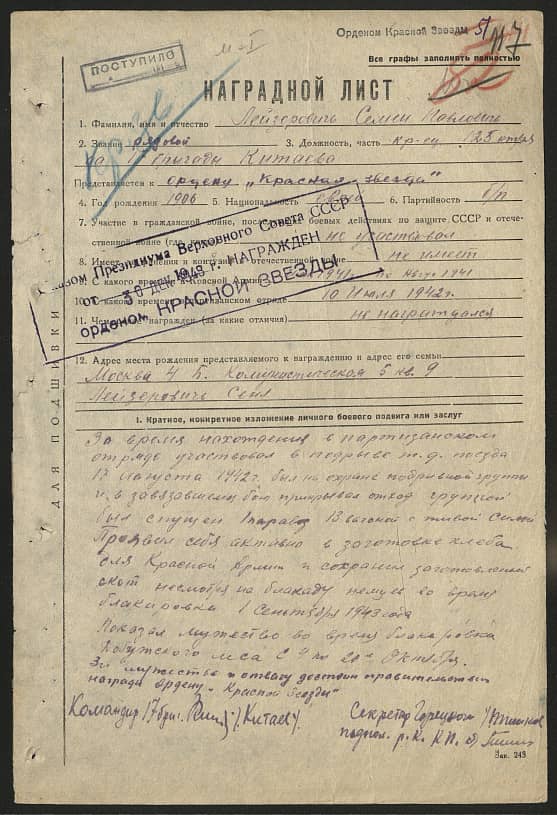 Орденом Красной Звезды 51
117
М-I
ПОСТУПИЛО
Все графы заполнять полностью
НАГРАДНОЙ ЛИСТ
1. Фамилия, имя и отчество Лейзерович Семен Павлович
2. Звание рядовой 3. Должность, часть кр-ец 125 отряда
Бригады Китаева
Представляется к ордену „Красная звезда“
4. Год рождения 1906 5. Национальность 6. Партийность б/п
7. Участие в гражданской войне, последующих боевых действиях по защите СССР и отече-
ственной войне (где, не участвовал
8. Имеет ли ранения и контузии в отечественной войне не имеет
9. С какого времени в Красной Армии 1941 г. по 1941
10. С какого времени в партизанском отряде 10 Июля 1942 г.
11. Чем ранее награжден (за какие отличия) не награждался
Указом Президиума Верховного Совета СССР
от 30 дек 1948 г. НАГРАЖДЕН
орденом КРАСНОЙ ЗВЕЗДЫ
12. Адрес места рождения представляемого к награждению и адрес его семьи
Москва 4 Б. Комунистическая 5 кв. 9
Лейзерович Сеня
ДЛЯ ПОДШИВКИ
1. Краткое, конкретное изложение личного боевого подвига или заслуг
За время нахождения в партизанском
отряде участвовал в подрыве ж.д. поезда
17 Августа 1942 г. был на охране подрывной группы
и в завязавшемся бою прикрывал отход группы
был спущен 1 паравоз 13 вагонов с живой силой
Проявил себя активно в заготовке хлеба
для Красной Армии и сохранил заготовленный
скот несмотря на блакаду немцев во время
блакировки 1 Сентября 1943 года
Показал мужество во время блакировки
леса с 4 по 20 Октября.
За мужество и отвагу достоин правительствен
награды Ордену „Красной Звезды“
Командир 17 бриг. /Китаев/
Секретарь Горецкого
подпол. р.К. КП. б)
Зак. 243